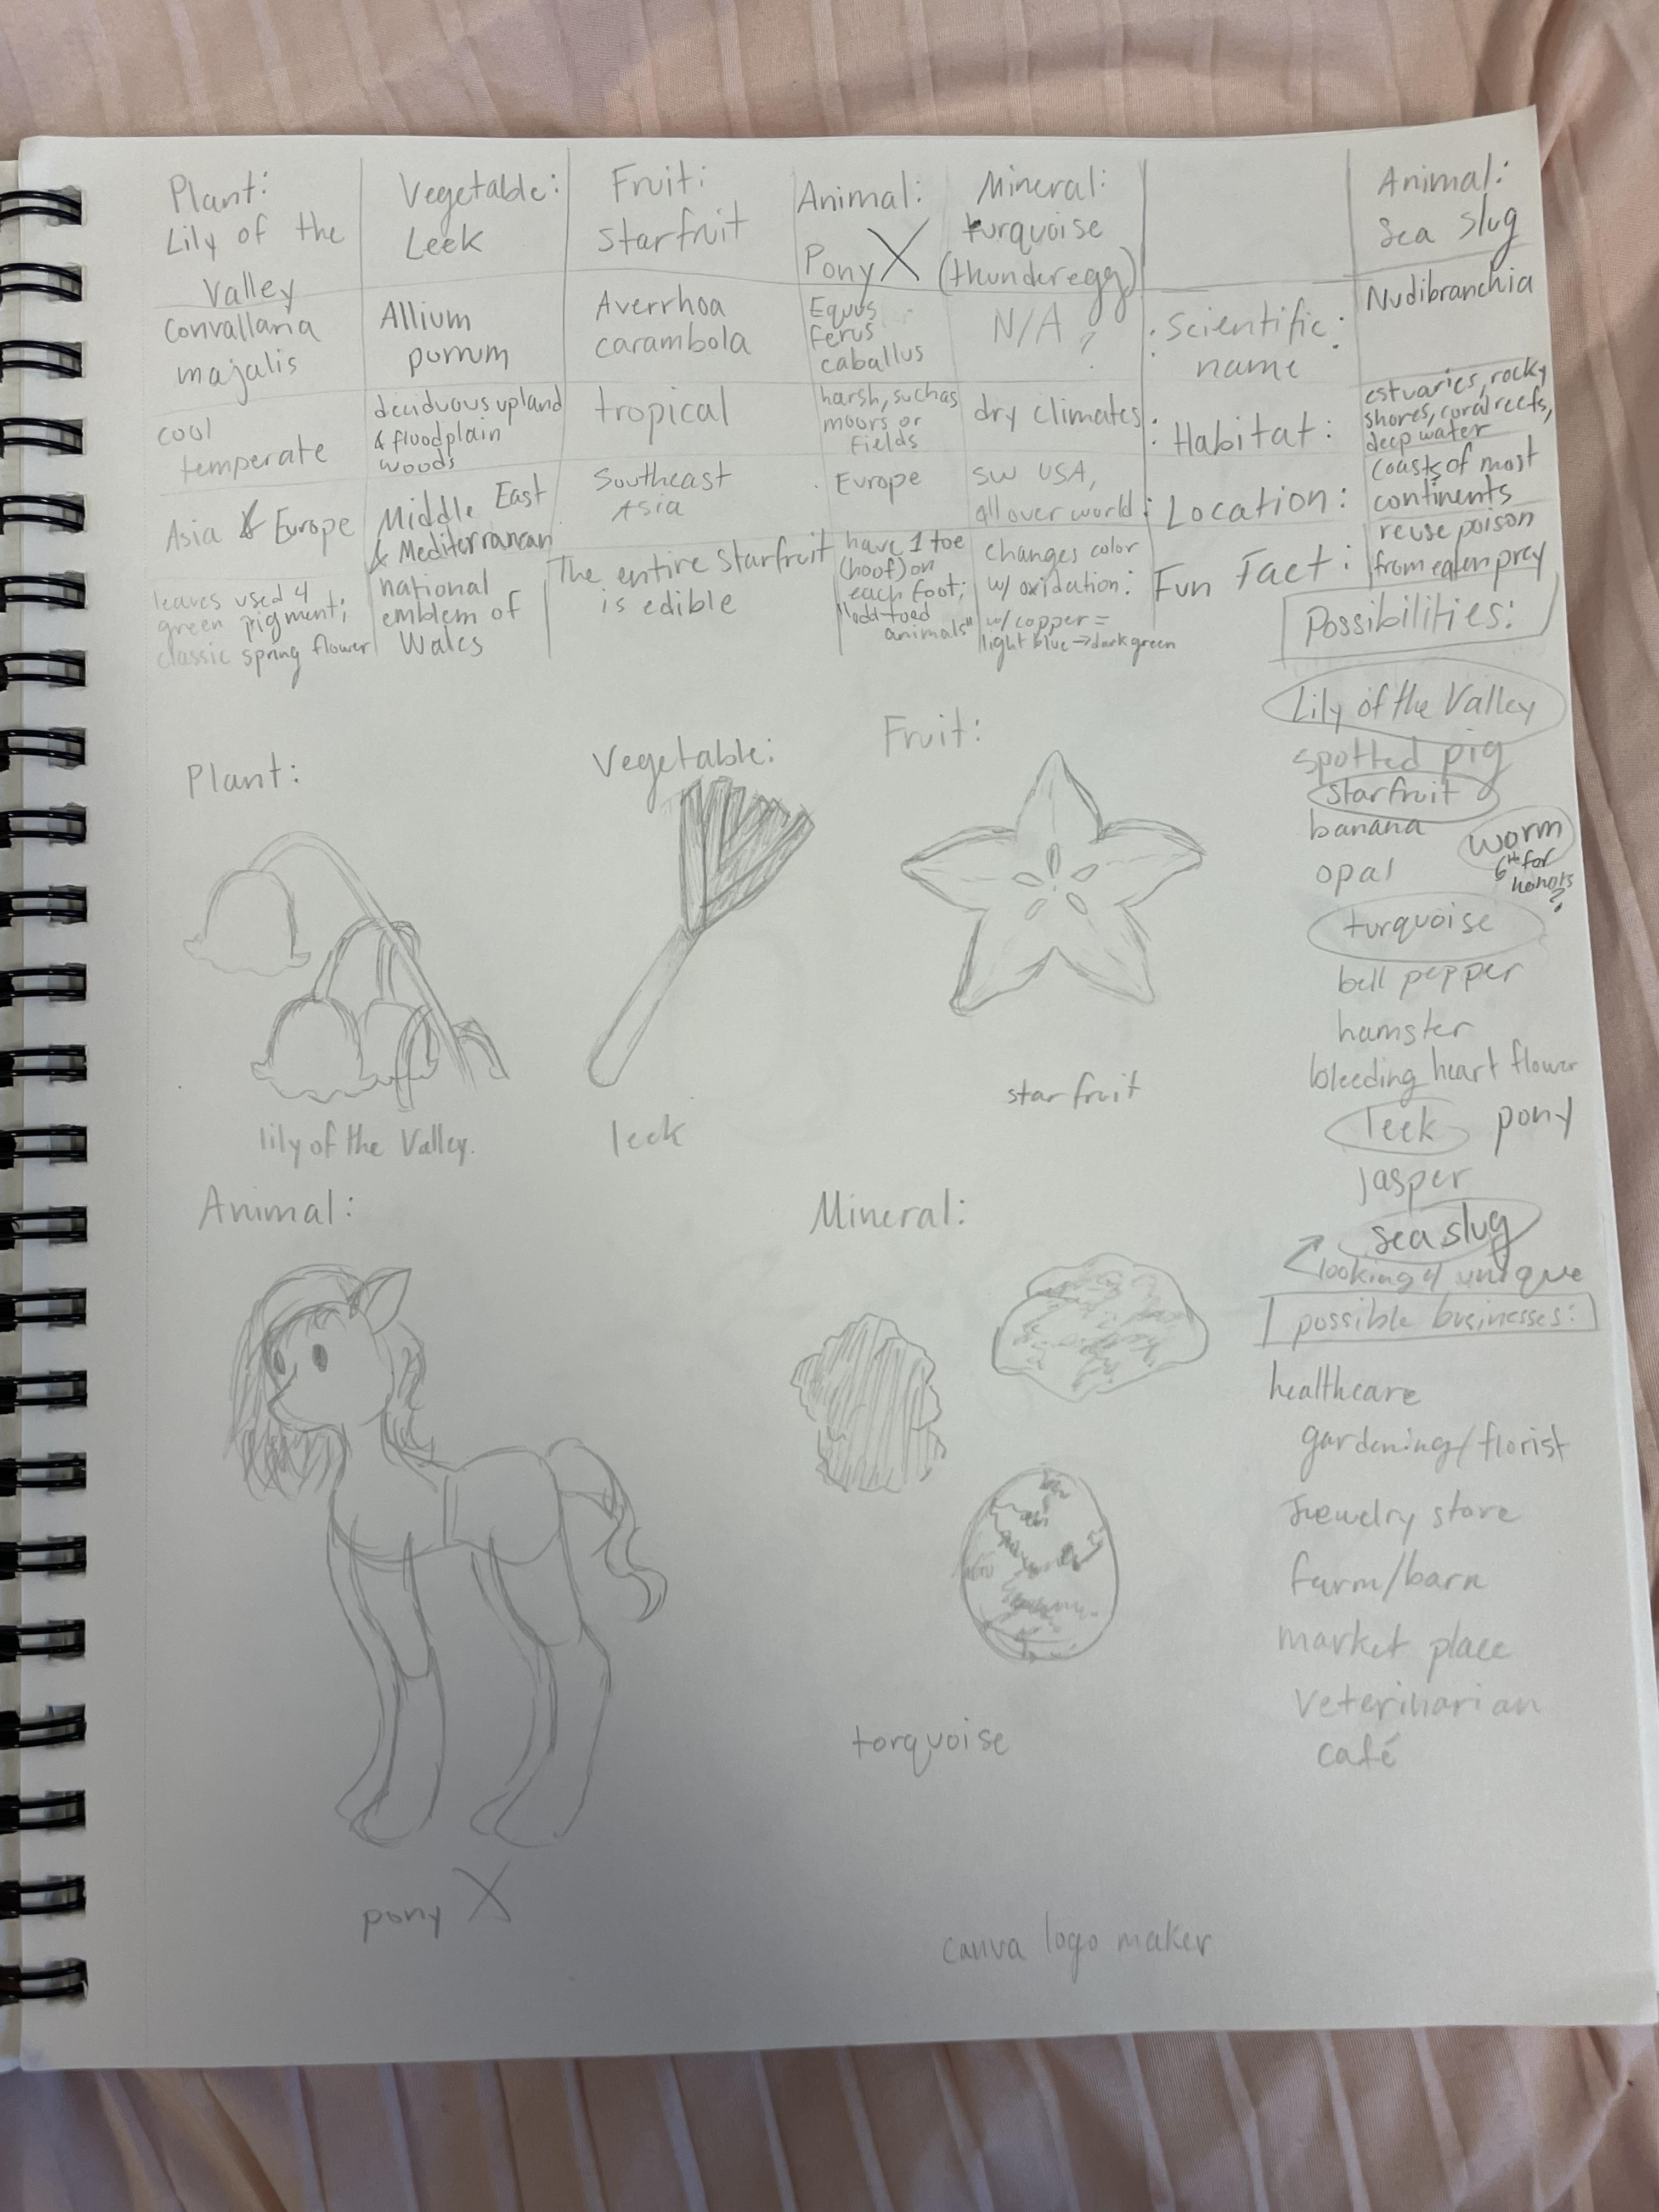 Plant:
Lily of the
Valley
Convallaria
majalis
cool
temperate
Asia & Europe
leaves used 4
green pigment;
classic spring flower
Vegetable:
Leek
Allium
porrum
deciduous upland
& floodplain
woods
Middle East
& Mediterranean
national
emblem of
Wales
Fruit:
Starfruit
Averrhoa
carambola
tropical
Southeast
Asia
The entire starfruit
is edible
Animal:
Pony X
Equus
ferus
caballus
harsh, such as
moors or
fields
Europe
have 1 toe
(hoof) on
each foot;
"odd-toed
animals"
Mineral:
turquoise
(thunderegg)
N/A ?
dry climates
SW USA,
all over world
changes color
w/ oxidation:
w/ copper =
light blue → dark green
: Scientific :
name
: Habitat :
: Location :
Fun Fact :
Animal:
Sea Slug
Nudibranchia
estuaries, rocky
shores, coral reefs,
deep water
coasts of most
continents
reuse poison
from eaten prey
Possibilities:
Lily of the Valley
spotted pig
starfruit
banana
worm
6th for
honors
?
opal
turquoise
bell pepper
hamster
bleeding heart flower
leek pony
jasper
sea slug
looking 4 unique
possible businesses:
healthcare
gardening/florist
jewelry store
farm/barn
market place
veterinarian
café
Plant:
lily of the Valley.
Vegetable:
leek
Fruit:
starfruit
Animal:
pony X
Mineral:
torquoise
canva logo maker